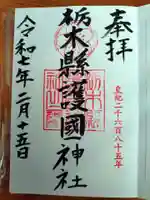 奉拝
皇紀二千六百八十五年
栃木縣護國神社
令和七年二月十五日